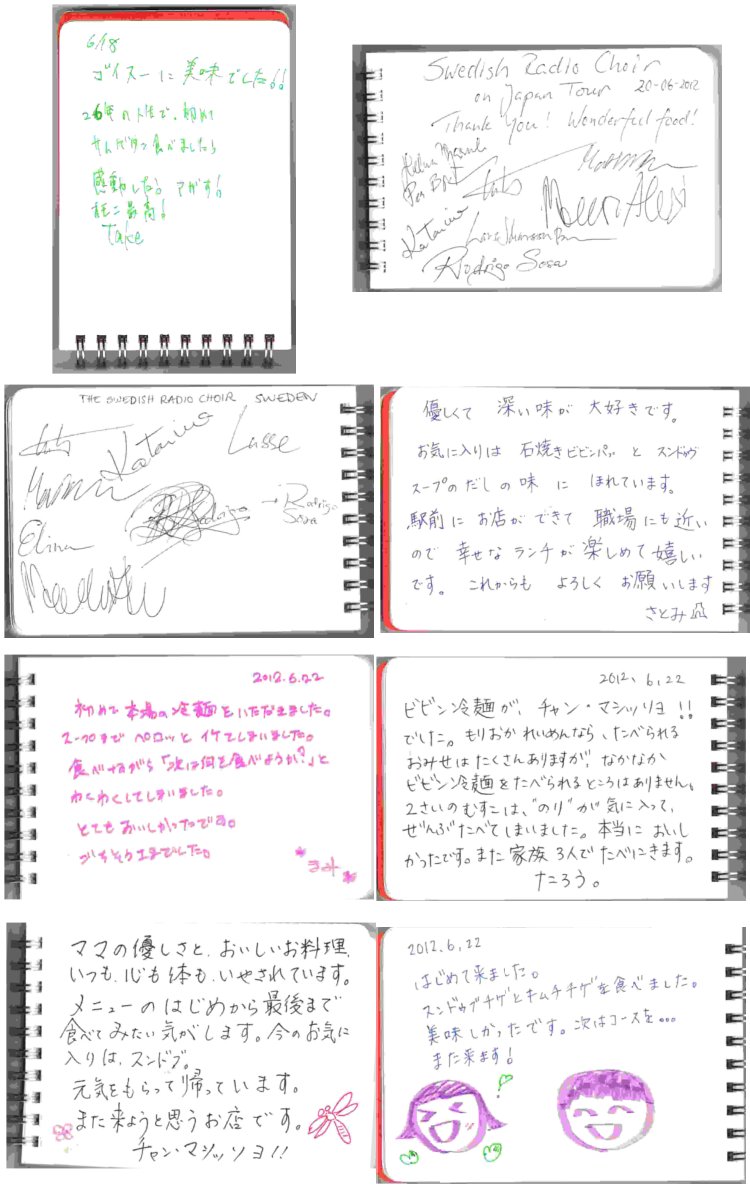 6/18
ゴイスーに美味でした!!
26年の人生で、初めて
サムゲタン食べましたら
感動した!
最高!
Take
Swedish Radio Choir
on Japan Tour 20-06-2012
Thank you! Wonderful food!
Katarina
Rodrigo Sosa
THE SWEDISH RADIO CHOIR SWEDEN
Katarina
Lasse
Elina
Rodrigo
→Rodrigo
Sosa
優しくて 深い味が 大好きです。
お気に入りは 石焼きビビンパッ と スンドゥヴ
スープのだしの味 に ほれています。
駅前に お店ができて 職場にも近い
ので 幸せなランチが楽しめて嬉しい
です。 これからも よろしく お願いします
さとみ
2012.6.22
初めて本場の冷麺をいただきました。
スープまでペロッとイケてしまいました。
食べながら「次は何を食べようか?」と
わくわくしてしまいました。
とてもおいしかったです。
ごちそうさまでした。
きみ
2012.6.22
ビビン冷麺が、チャン・マシッソヨ!!
でした。もりおかれいめんなら、たべられる
おみせはたくさんありますが、なかなか
ビビン冷麺をたべられるところはありません。
2さいのむすこは、"のり"が気に入って、
ぜんぶたべてしまいました。本当においし
かったです。また家族3人でたべにきます。
たろう。
ママの優しさと、おいしいお料理、
いつも、心も体も、いやされています。
メニューのはじめから最後まで
食べてみたい気がします。今のお気に
入りは、スンドブ。
元気をもらって帰っています。
また来ようと思うお店です。
チャン・マシッソヨ!!
2012.6.22
はじめて来ました。
スンドゥブチゲとキムチチゲを食べました。
美味しかったです。次はコースを...
また来ます!